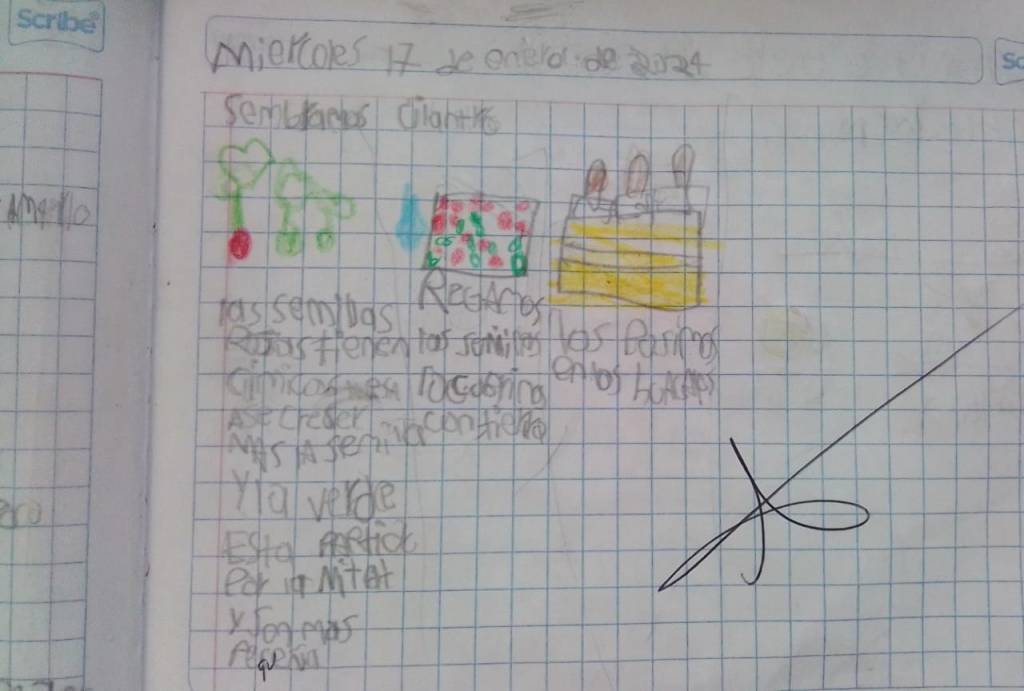 Scribe
Miercoles 17 de enero de 2024
Sembramos cilantro
las semillas
Rojas tienen
asecreser
mas la semilla
Y la verde
Esta partida
Por la mitat
y son mas
Pequeña
REGAMOS
las semillas
con tierra
los Pusimos
en los huacales